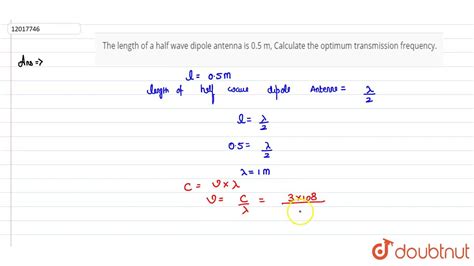 12017746
The length of a half wave dipole antenna is 0.5 m, Calculate the optimum transmission frequency.
Ans ⇒
l = 0.5m
length of half wave dipole Antenne = λ/2
l = λ/2
0.5 = λ/2
λ = 1m
C = υ × λ
υ = C/λ = 3×108
doubtnut